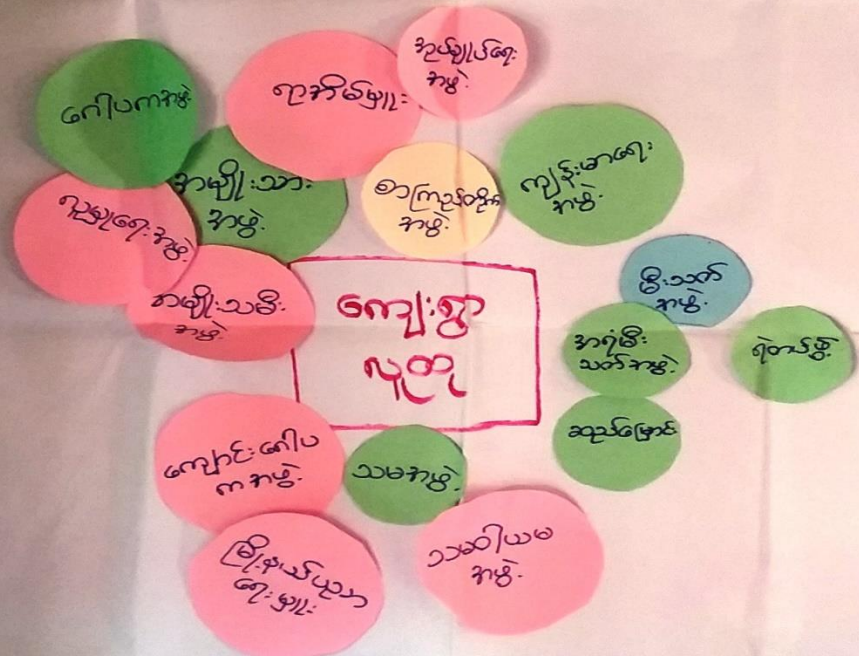 အုပ်ချုပ်ရေး
အဖွဲ့
ရာအိမ်မှူး
ဂေါပကအဖွဲ့
အမျိုးသား
အဖွဲ့
စာကြည့်တိုက်
အဖွဲ့
ကျန်းမာရေး
အဖွဲ့
ရပ်မှုရေးအဖွဲ့
အမျိုးသမီး
အဖွဲ့
ကျေးရွာ
လူထု
မီးသတ်
အဖွဲ့
အရံမီး
သတ်အဖွဲ့
ရဲတပ်ဖွဲ့
ဆည်မြောင်း
ကျောင်းဂေါပ
ကအဖွဲ့
သမအဖွဲ့
မြို့နယ်ပညာ
ရေးမှူး
အဖွဲ့